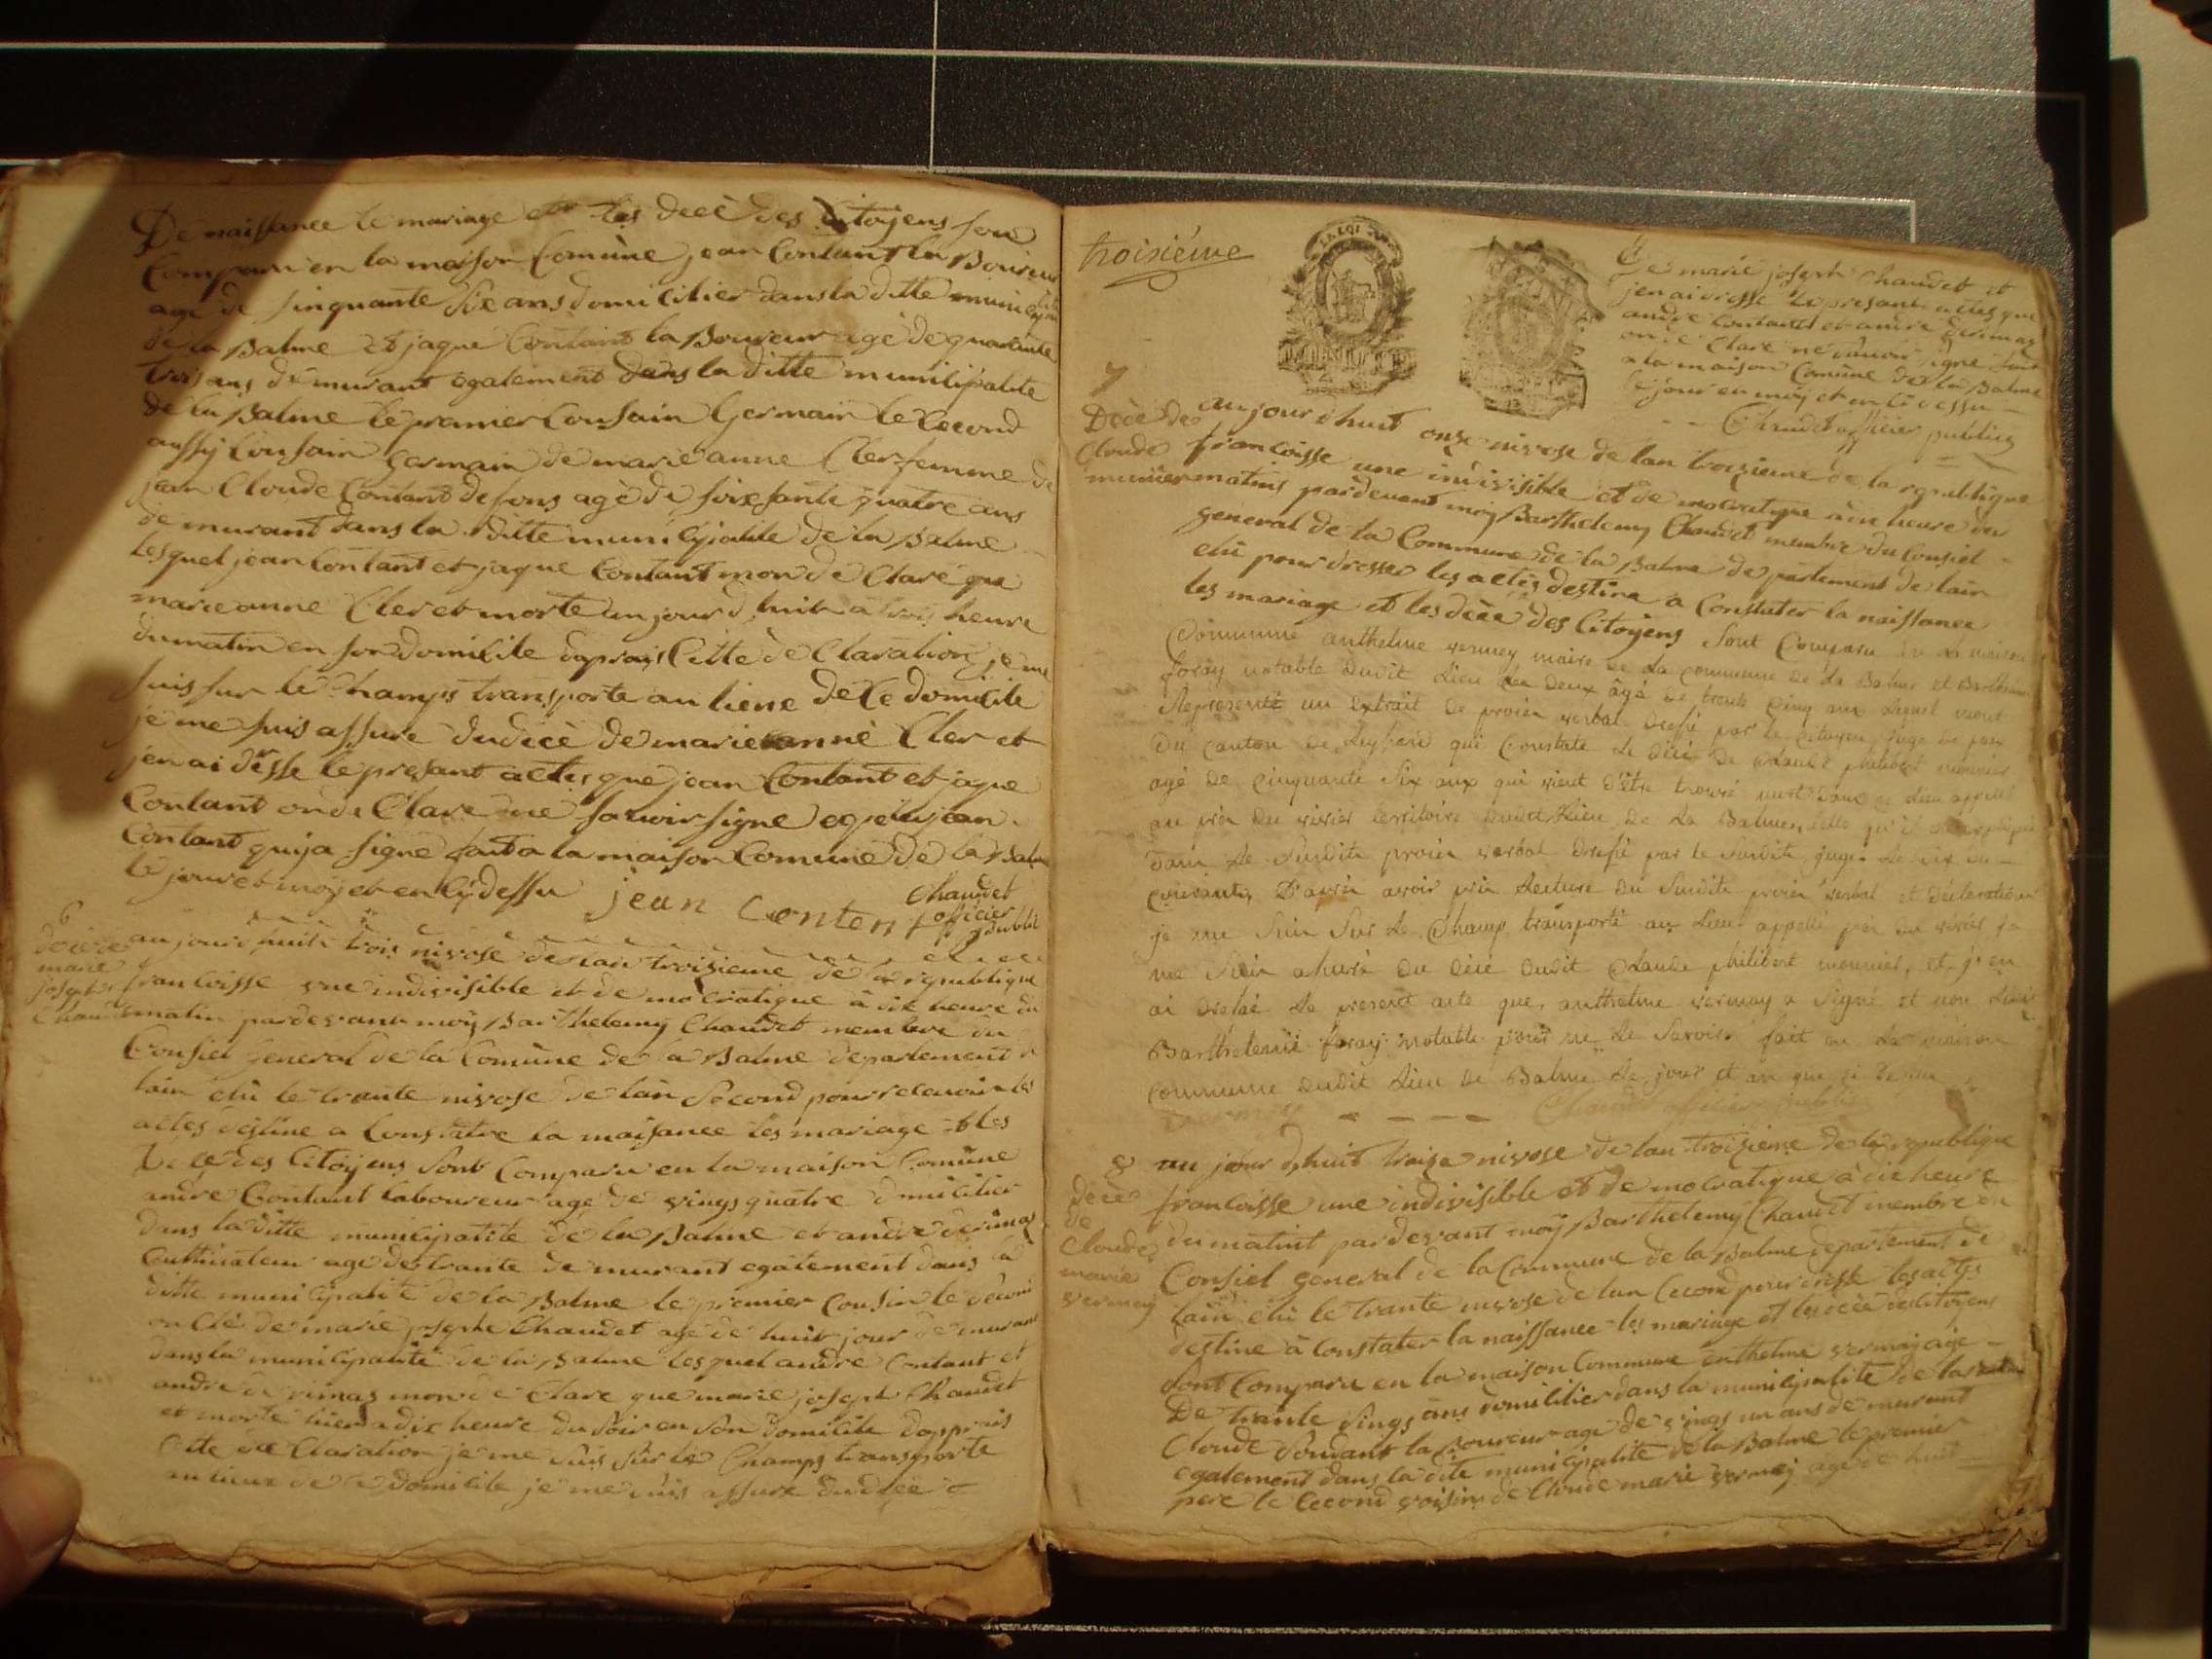 De naissance le mariage et les decè des Citoyens son
Comparu en la maison Comune jean Contant la Boureur
agé de sinquante six ans domicilier dans la ditte municipalite
de la Balme et jaque Contant la Boureur agé de quarante
trois ans de murant egalement dans la ditte municipalite
de la Balme le premier Cousain Germain le Cecond
aussy Cousain Germain de marie anne Cler femme de
jean Cloude Contant defons agè de soixsante quatre ans
de murant dans la ditte municipalite de la Balme
lesquel jean Contant et jaque Contant mon de Claré que
marie anne Cler et morte aujourd huit a trois heure
du matin en son domicile daprais Cette de Claration je me
suis sur le Champs transporte au liene de Ce domicile
je me suis assure du decè de marie anne Cler et
jen ai desse le presant actes que jean Contant et jaque
Contant on de Clare ne savoir signe jean
Contant qui ja signe fait a la maison Comune de la Balme
le jour et moy et en Cy dessu jean Conten Chaudet
officier
public
6
decè de
marie
joseph
Chaudet
au jour d huit trois nivose de lan troizieme de la republique
francoisse une indivisible et de mocratique à dix heure du
matin par devant moy Barthelemy Chaudet membre du
Consiel General de la Comune de la Balme departement de
lain elü le trante nivose de lan Second pour recevoir les
actes destine a Constatre la naisance les mariage et les
decè des Citoyens sont Comparu en la maison Comune
andre Contant laboureur agé de vings quatre domicilier
dans la ditte municipalite de la Balme et andre derimas
Culthivateur agé de trante de murant egalement dans la
ditte municipalite de la Balme le premier Cousin le Second
oncle de marie joseph Chaudet age de huit jour de murant
dans la municipalite de la Balme lesquel andre Contant et
andre derimas mon de Clare que marie joseph Chaudet
et morte hier a dix heure du soir en son domicile dapprais
Cette de Claration je me suis sur le Champs transporte
au lieux de Ce domicile je me suis assure du decè
troisiéme
De marie joseph Chaudet et
jen ai dresse le presant actes que
andre Contant et andre derimas
on de Clare ne savoir signe fait
a la maison Comune de la Balme
le jour en moy et en Ci dessu
Chaudet officier public
7
Decè de
Cloude
munier
au jour d huit onze nivose de lan troizieme de la republique
francoisse une indivisible et de mocratique a heure du
matins par devant moy Barthelemy Chaudet membre du Consiel
general de la Commune de la Balme de partement de lain
elü pour dresser les actes destine a Constater la naissance
les mariage et les decè des Citoyens sont Comparu en la maison
Commune anthelme vermey maire de la commune de la Balme et Barthelemi
foray notable dudit lieu deux âgé de trente cinq ans lequel
represente un extrait de procès verbal dressé par le citoyen juge de paix
du canton de Leyssard qui constate le décé de claude philibert mounier
agé de cinquante six ans qui vient d'être trouvé mort dans le lieu appellé
au pré du vivier territoire dudit lieu de la Balme,
dans le susdite procès verbal dressé par le susdite juge
courant, D'après avoir pris lecture du susdite procès verbal et déclaration
je me suis sur le champ transporté au lieu appellé pré du vivier je
me suis assuré du décé dudit claude philibert mounier, et j'en
ai dressé le present acte que, anthelme vermay a signé et non ledit
Barthelemie foray notable pour ne le savoir. fait en la maison
commune dudit lieu de Balme le jour et an que ci dessu
vermey - - - - Chaudet officier public
8
decè
de
Cloude
marie
vermey
au jour d huit traize nivose de lan troizieme de la republique
francoisse une indivisible et de mocratique à dix heure
du matint par devant moy Barthelemy Chaudet membre du
Consiel general de la Commune de la Balme departement de
lain elü le trante nivose de lan Cecond pour dresse les actes
destine à Constater la naissance les mariage et les decè des Citoyens
sont Comparu en la maison Commune enthelme vermay agé
De trante sings ans domicilier dans la municipalite de la Balme
Cloude la Boureur age de vings un ans de murant
egalement dans la dite municipalite de la Balme le premier
pere le Cecond voisin de Cloude marie vermey age de huit